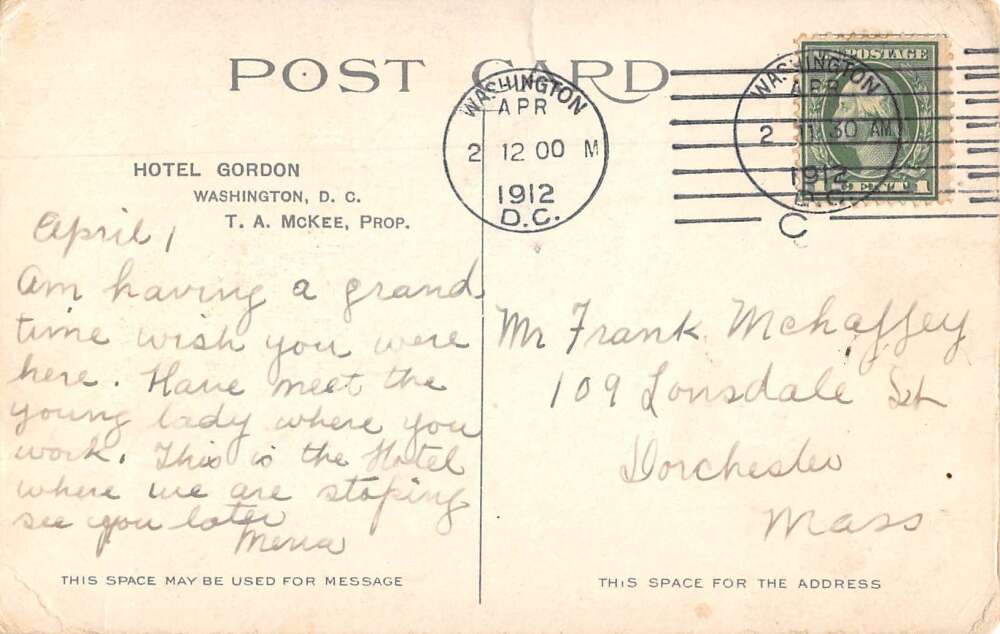 POST CARD
HOTEL GORDON
WASHINGTON, D. C.
T. A. McKEE, PROP.
WASHINGTON
APR
2 12 00 M
1912
D.C.
WASHINGTON
APR
2 11 30 AM
1912
D.C.
C
POSTAGE
1 CENT 1
April 1
Am having a grand
time wish you were
here. Have meet the
young lady where you
work. This is the Hotel
where we are stoping
see you later
Mr Frank Mchaffey
109 Lonsdale St
Dorchester
Mass
THIS SPACE MAY BE USED FOR MESSAGE
THIS SPACE FOR THE ADDRESS